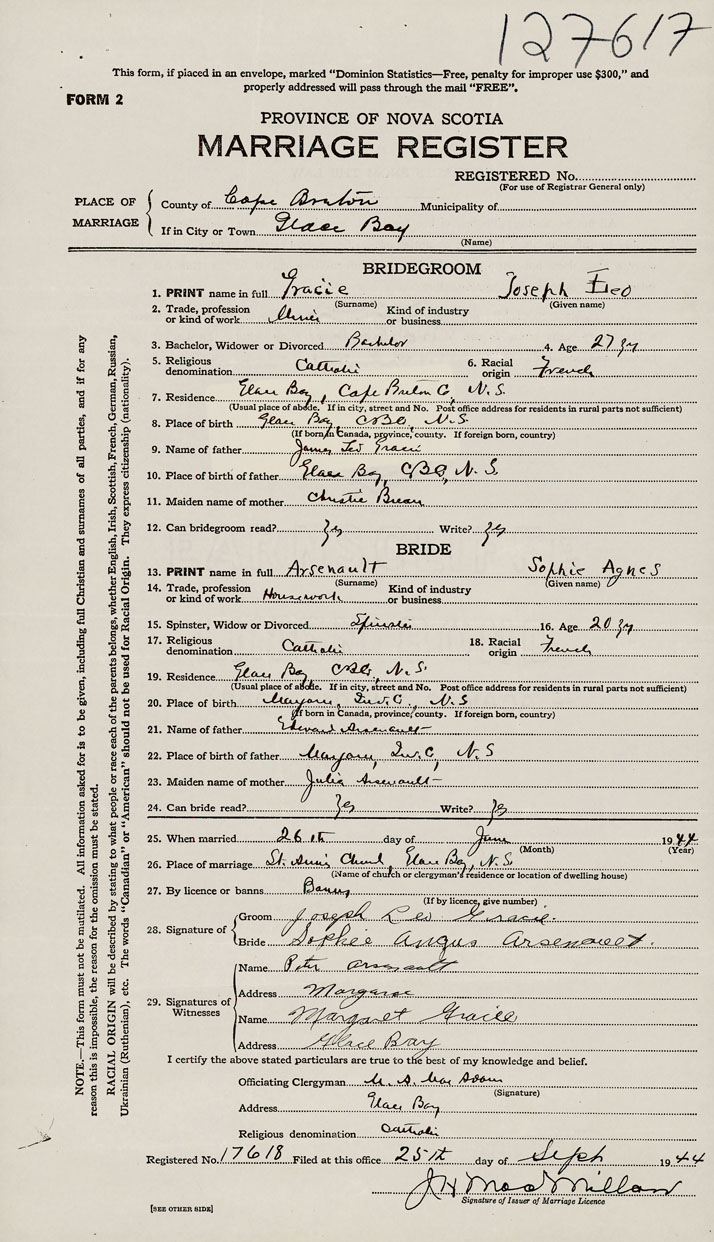 127617
This form, if placed in an envelope, marked “Dominion Statistics—Free, penalty for improper use $300,” and
properly addressed will pass through the mail “FREE”.
FORM 2
PROVINCE OF NOVA SCOTIA
MARRIAGE REGISTER
REGISTERED No.
(For use of Registrar General only)
PLACE OF MARRIAGE
County of Cape Breton Municipality of
If in City or Town Glace Bay
(Name)
BRIDEGROOM
1. PRINT name in full Gracie Joseph Leo
(Surname) (Given name)
2. Trade, profession or kind of work Miner Kind of industry or business
3. Bachelor, Widower or Divorced Bachelor 4. Age 27
5. Religious denomination Catholic 6. Racial origin French
7. Residence Glace Bay, Cape Breton Co, N.S.
(Usual place of abode. If in city, street and No. Post office address for residents in rural parts not sufficient)
8. Place of birth Glace Bay CBCo N.S.
(If born in Canada, province, county. If foreign born, country)
9. Name of father James Gracie
10. Place of birth of father Glace Bay, CBCo, N.S.
11. Maiden name of mother Christie
12. Can bridegroom read? Yes Write? Yes
BRIDE
13. PRINT name in full Arsenault Sophie Agnes
(Surname) (Given name)
14. Trade, profession or kind of work Housework Kind of industry or business
15. Spinster, Widow or Divorced Spinster 16. Age 20
17. Religious denomination Catholic 18. Racial origin French
19. Residence Glace Bay, CBCo, N.S.
(Usual place of abode. If in city, street and No. Post office address for residents in rural parts not sufficient)
20. Place of birth N.S
(If born in Canada, province, county. If foreign born, country)
21. Name of father Edward Arsenault
22. Place of birth of father N.S
23. Maiden name of mother Julia Arsenault
24. Can bride read? Yes Write? Yes
25. When married 26th day of June 1944
(Month) (Year)
26. Place of marriage St. Anne's Church, Glace Bay, N.S.
(Name of church or clergyman's residence or location of dwelling house)
27. By licence or banns Banns
(If by licence, give number)
28. Signature of
Groom Joseph Leo Gracie
Bride Sophie Angus Arsenault.
29. Signatures of Witnesses
Name Peter Arsenault
Address
Name Margaret
Address Glace Bay
I certify the above stated particulars are true to the best of my knowledge and belief.
Officiating Clergyman
(Signature)
Address Glace Bay
Religious denomination Catholic
Registered No. 17618 Filed at this office 25th day of Sept 1944
J H MacMillan
Signature of Issuer of Marriage Licence
[SEE OTHER SIDE]
NOTE.—This form must not be mutilated. All information asked for is to be given, including full Christian and surnames of all parties, and if for any
reason this is impossible, the reason for the omission must be stated.
RACIAL ORIGIN will be described by stating to what people or race each of the parents belongs, whether English, Irish, Scottish, French, German, Russian,
Ukrainian (Ruthenian), etc. The words “Canadian” or “American” should not be used for Racial Origin. They express citizenship (nationality).